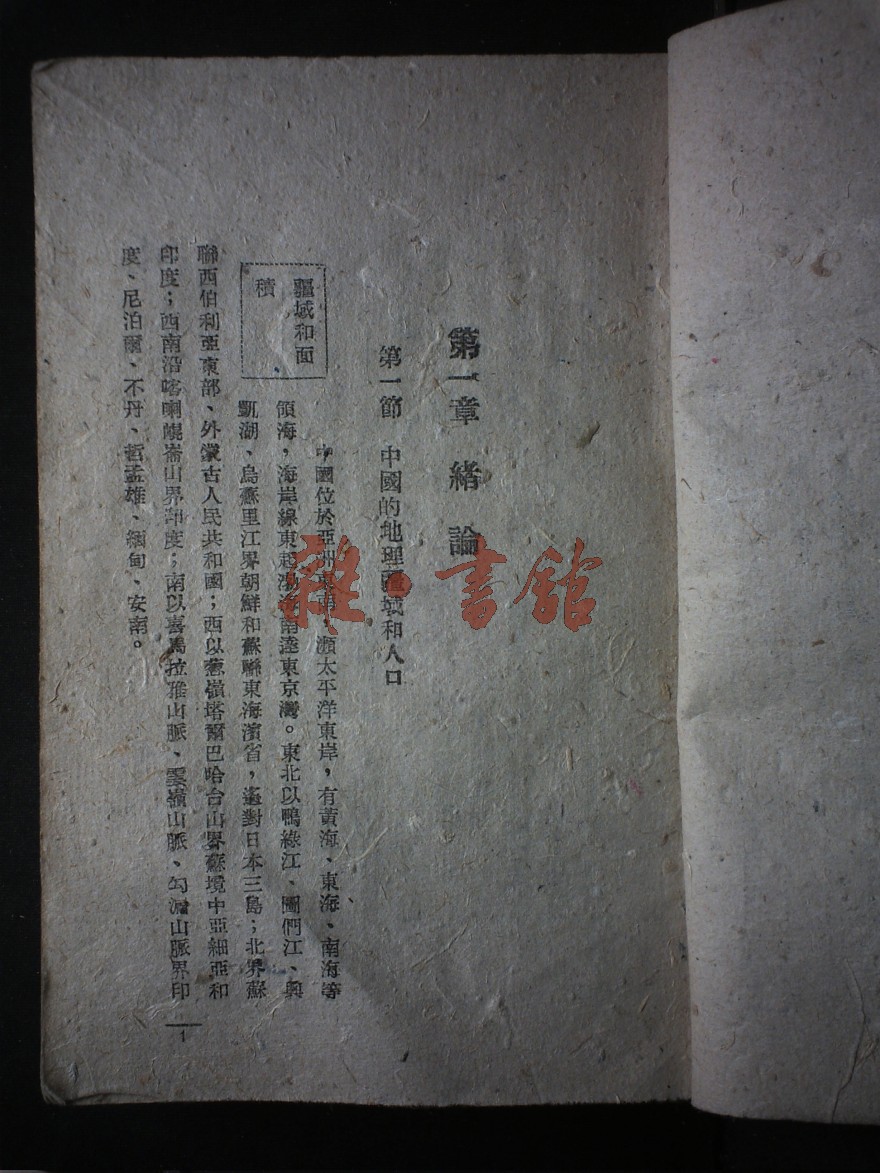 第一章 緒論
第一節 中國的地理疆域和人口
疆域和面
積
中國位於亞洲東南，瀕太平洋東岸，有黃海、東海、南海等
領海，海岸線東起渤海南達東京灣。東北以鴨綠江、圖們江、興
凱湖、烏蘇里江界朝鮮和蘇聯東海濱省，遙對日本三島；北界蘇
聯西伯利亞東部、外蒙古人民共和國；西以葱嶺塔爾巴哈台山界蘇境中亞細亞和
印度；西南沿喀喇崑崙山界印度；南以喜馬拉雅山脈、雲嶺山脈、勾漏山脈界印
度、尼泊爾、不丹、哲孟雄、緬甸、安南。
1
雜·書館